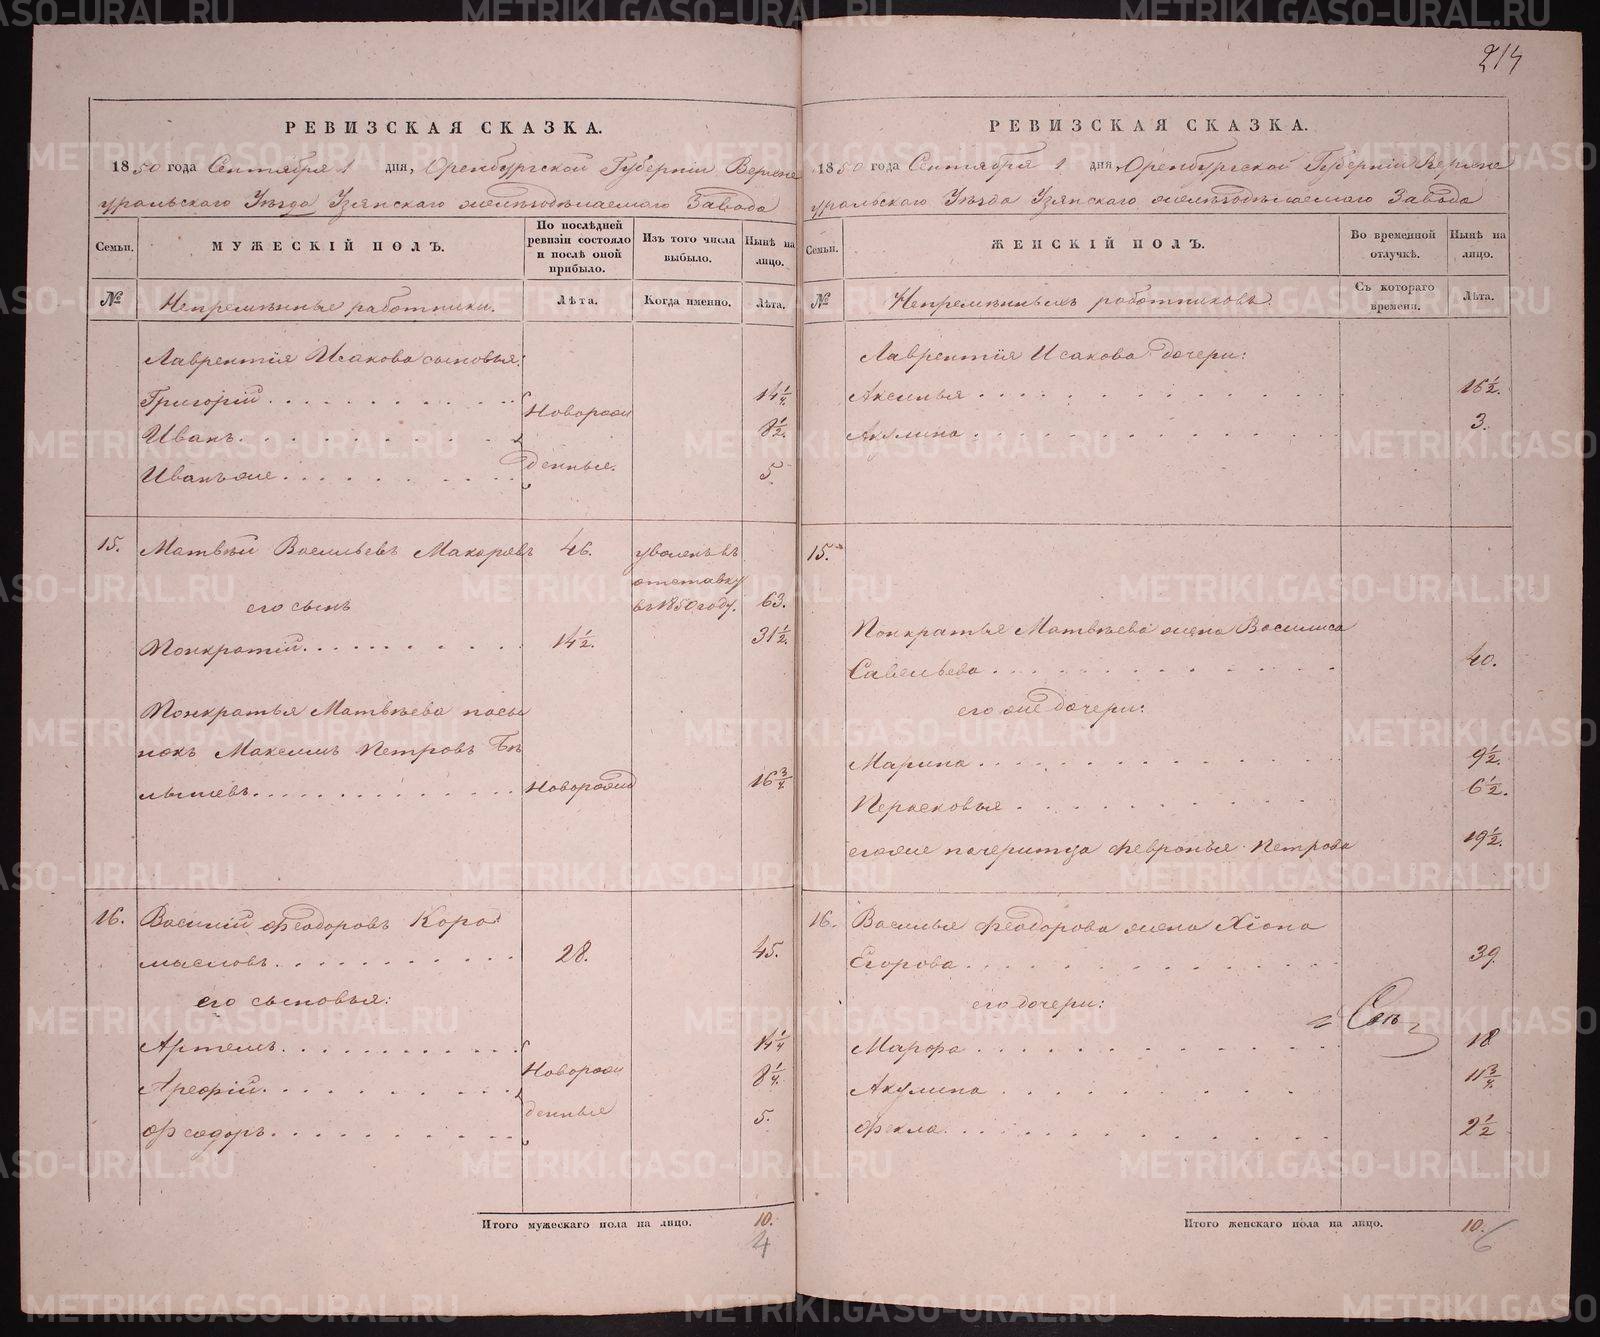 214
РЕВИЗСКАЯ СКАЗКА.
1850 года Сентября 1 дня, Оренбургской Губерніи Верхне
уральскаго Уѣзда Узянскаго желѣзодѣлаемаго Завода
Семьи.
МУЖЕСКІЙ ПОЛЪ.
По послѣдней ревизіи состояло и послѣ оной прибыло.
Изъ того числа выбыло.
Нынѣ на лицо.
№
Непремѣнные работники.
Лѣта.
Когда именно.
Лѣта.
Лаврентія Исакова сыновья:
Григорій 14 1/4
Иванъ Новорож 8 1/2.
Иванъ же денные. 5
15. Матвѣй Васильевъ Макаровъ 46. уволенъ въ
отставку
его сынъ въ 1850 году. 63.
Понкратій 14 1/2. 31 1/2.
Понкратья Матвѣева пасы
нокъ Максимъ Петровъ Бѣ
лышевъ Новорожд 16 3/4
16. Василий Феодоровъ Коро
мысловъ 28. 45.
его сыновья:
Артемъ 14 1/4
Арефій Новорож 8 1/4.
Феодоръ денные 5.
Итого мужескаго пола на лицо. 10.
4
РЕВИЗСКАЯ СКАЗКА.
1850 года Сентября 1 дня, Оренбургской Губерніи Верхне
уральскаго Уѣзда Узянскаго желѣзодѣлаемаго Завода
Семьи.
ЖЕНСКІЙ ПОЛЪ.
Во временной отлучкѣ.
Нынѣ на лицо.
№
Непремѣнныхъ работниковъ.
Съ котораго времени.
Лѣта.
Лаврентія Исакова дочери:
Аксинья 16 1/2.
Акулина 3.
15.
Понкратья Матвѣева жена Василиса
Савельева 40.
его же дочери:
Марина 9 1/2.
Перасковья 6 1/2.
его же пачерица Февронья Петрова 19 1/2.
16. Василья Феодорова жена Хіона
Егорова 39.
его дочери:
Марфа 18
Акулина 11 3/4.
Фекла 2 1/2
Итого женскаго пола на лицо. 10.
6
METRIKI.GASO-URAL.RU